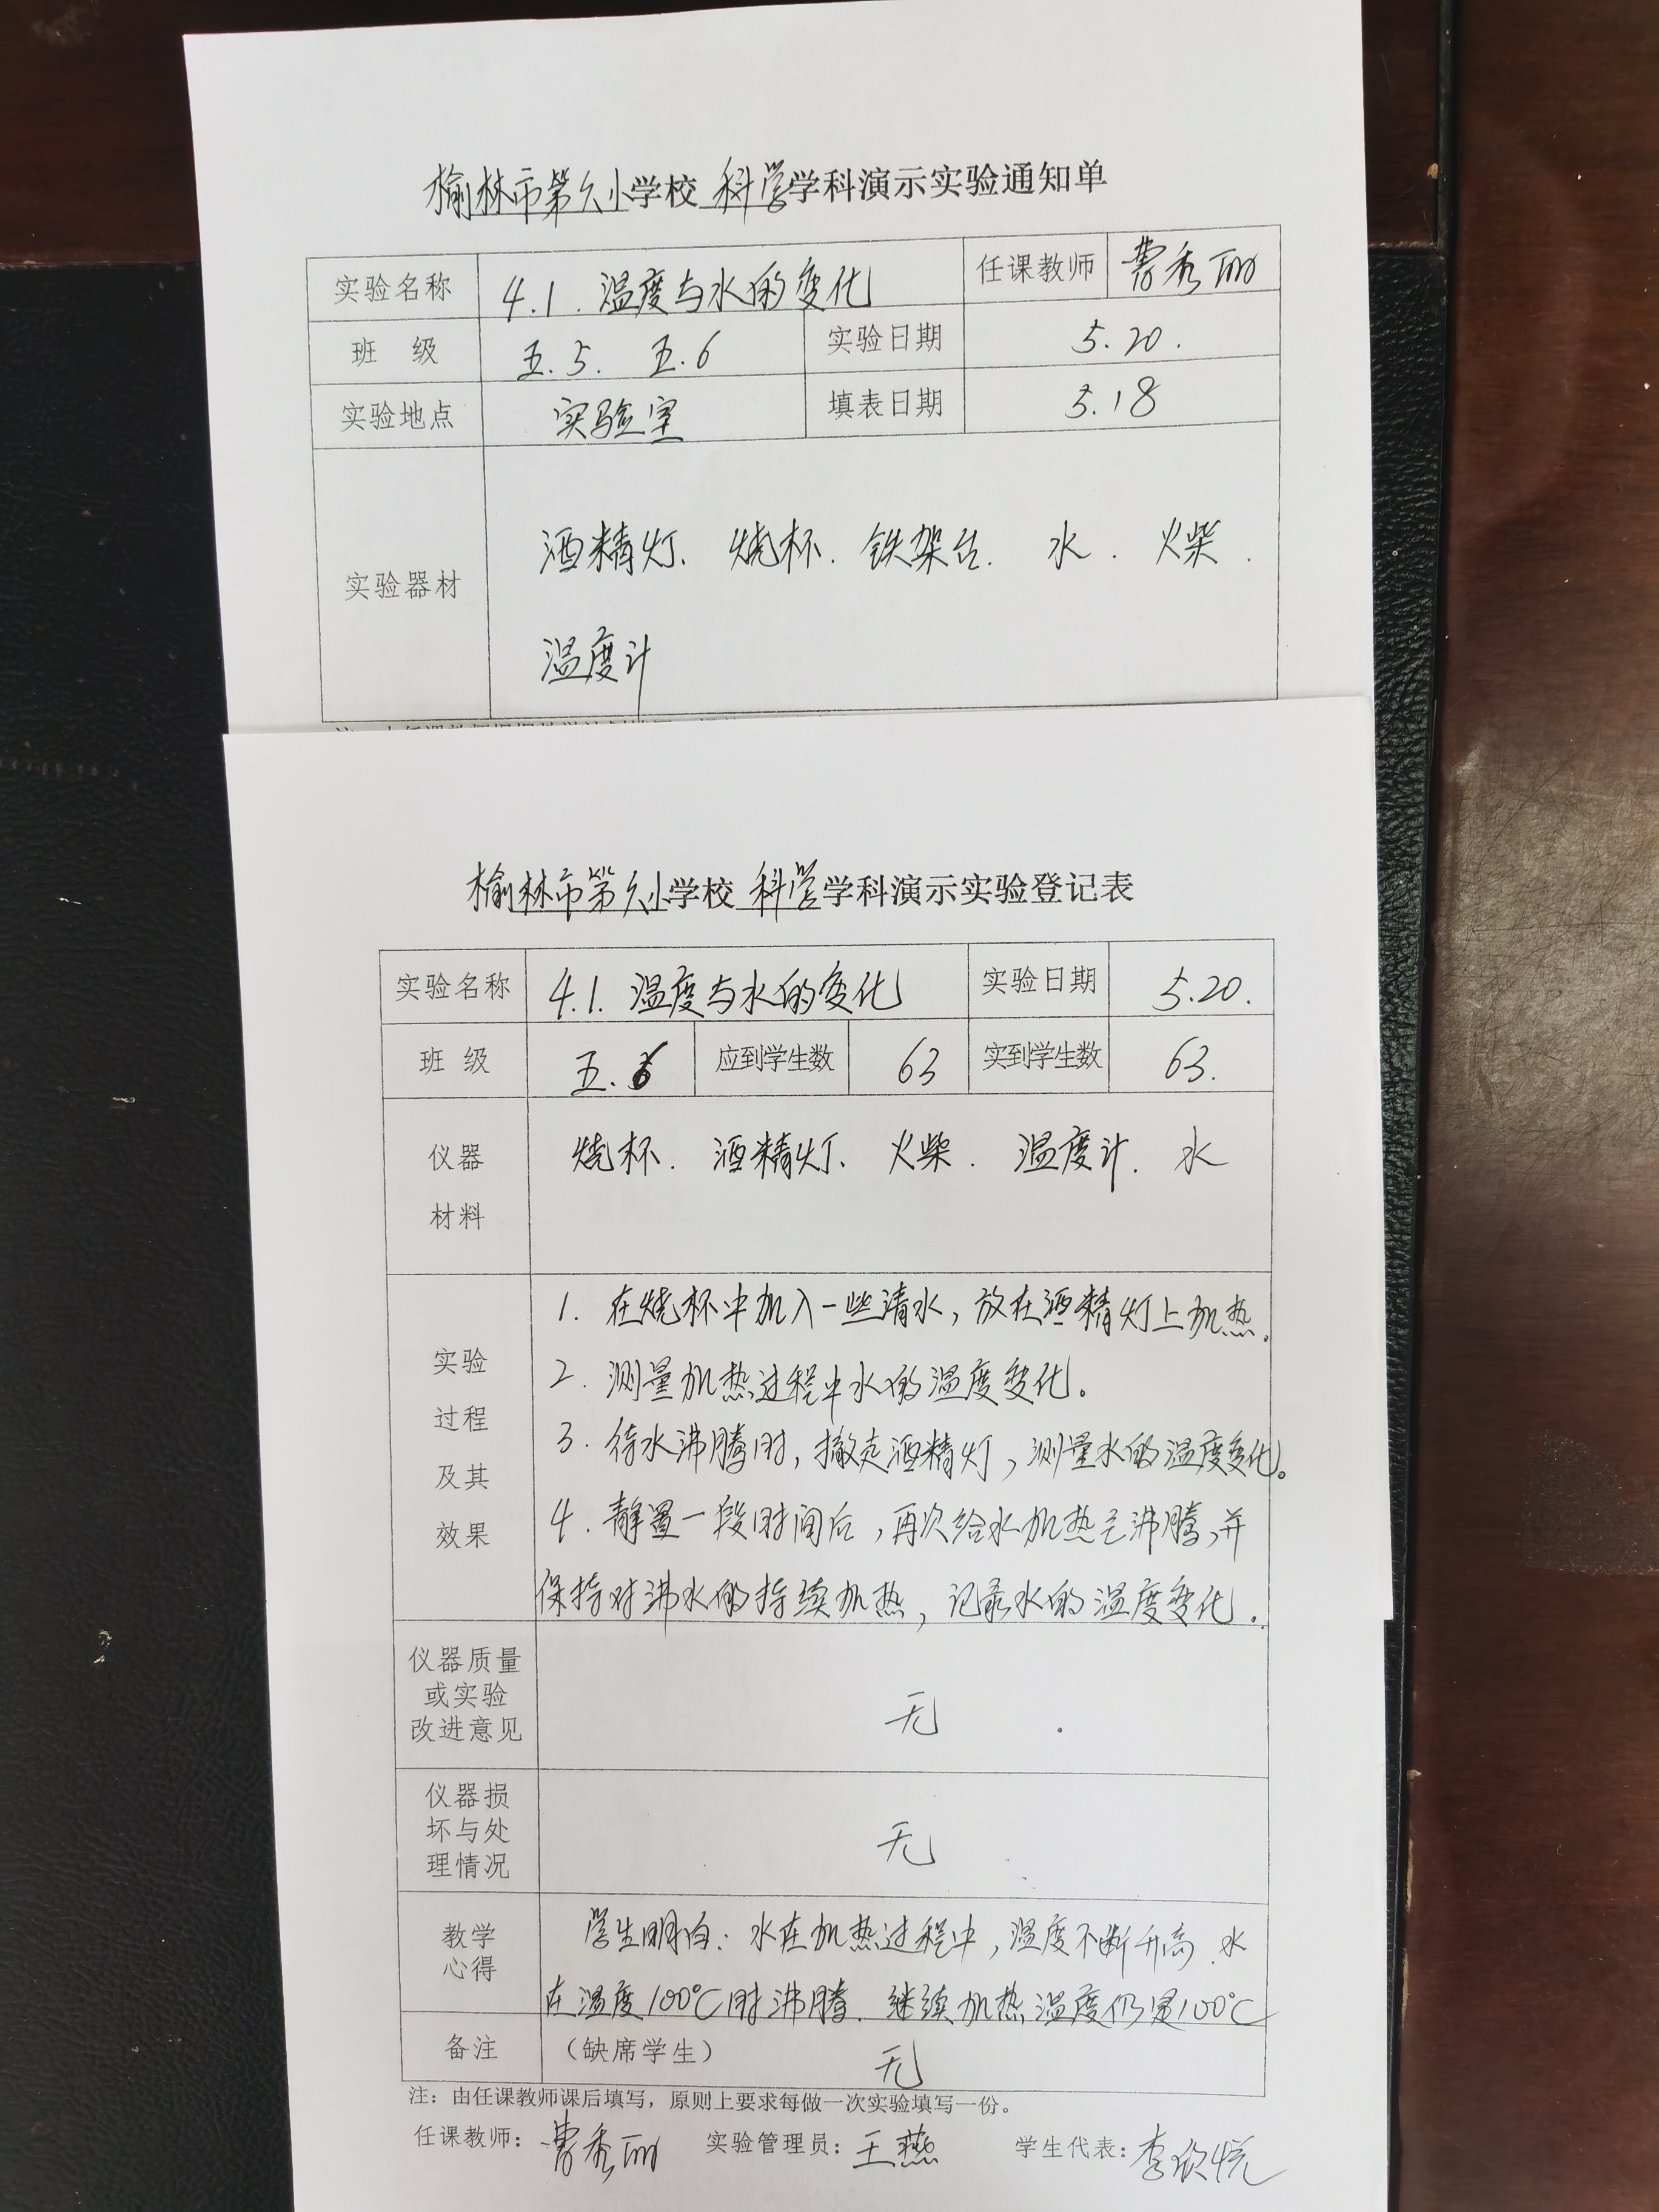 榆林市第六小学校 科学学科演示实验通知单
实验名称 4.1.温度与水的变化 任课教师 曹秀丽
班 级 五.5. 五.6 实验日期 5.20.
实验地点 实验室 填表日期 5.18
实验器材
酒精灯、烧杯、铁架台、水、火柴、
温度计
榆林市第六小学校 科学学科演示实验登记表
实验名称 4.1.温度与水的变化 实验日期 5.20.
班 级 五.6 应到学生数 63 实到学生数 63.
仪器
材料
烧杯、酒精灯、火柴、温度计、水
实验
过程
及其
效果
1. 在烧杯中加入一些清水,放在酒精灯上加热。
2. 测量加热过程中水的温度变化。
3. 待水沸腾时,撤走酒精灯,测量水的温度变化。
4. 静置一段时间后,再次给水加热已沸腾,并
保持对沸水的持续加热,记录水的温度变化.
仪器质量
或实验
改进意见
无
仪器损
坏与处
理情况
无
教学
心得
学生明白:水在加热过程中,温度不断升高.水
在温度100℃时沸腾.继续加热温度仍是100℃
备注 (缺席学生) 无
注:由任课教师课后填写,原则上要求每做一次实验填写一份。
任课教师:曹秀丽 实验管理员:王燕 学生代表:李欣悦